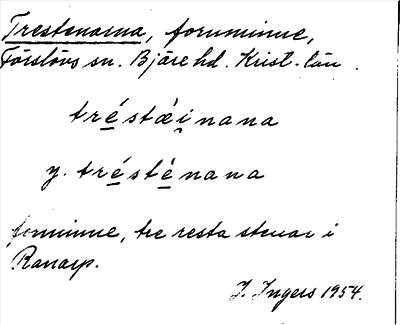 Trestenarna, fornminne,
Förslövs sn. Bjäre hd. Krist. län.
tré̱stæ̱i̯nana
y. tré̱sté̱nana
fornminne, tre resta stenar i
Ranarp.
I. Ingers 1954.